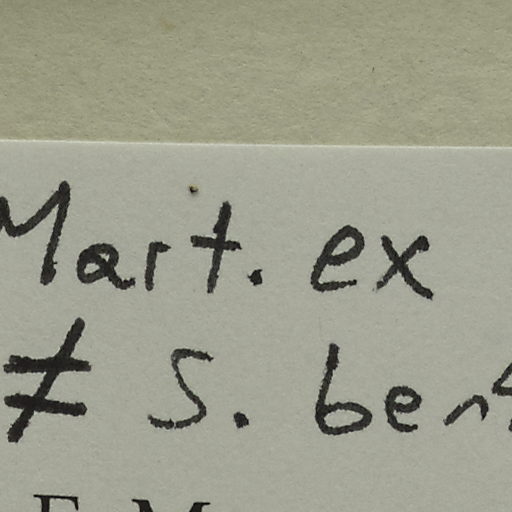 Mart. ex
≠ S. bent